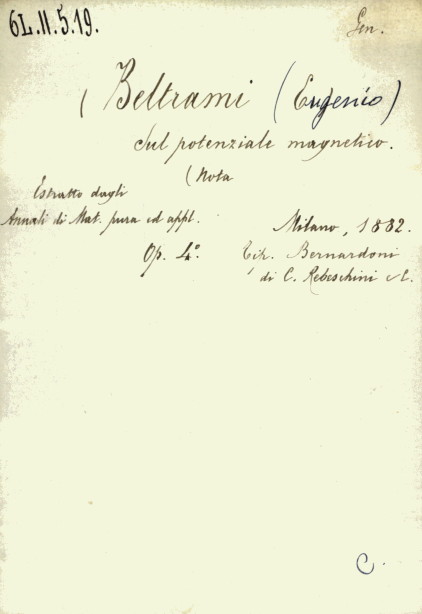 6L.II.5.19.
Gen.
(Beltrami (Eugenio)
Sul potenziale magnetico.
(Nota
Estratto dagli
Annali di Mat. pura ed appl.
Milano, 1882.
Op. 4º.
Tip. Bernardoni
di C. Rebeschini e C.
C.